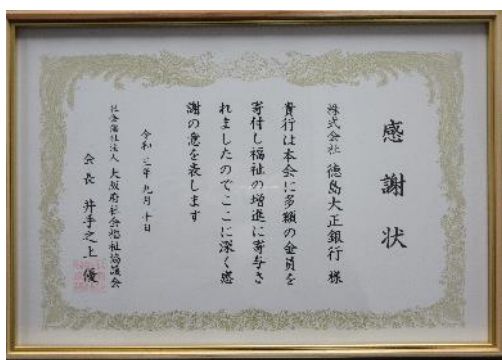 感謝状
株式会社 徳島大正銀行 様
貴行は本会に多額の金員を
寄付し福祉の増進に寄与さ
れましたのでここに深く感
謝の意を表します
令和三年九月十日
社会福祉法人 大阪府社会福祉協議会
会長 井手之上 優